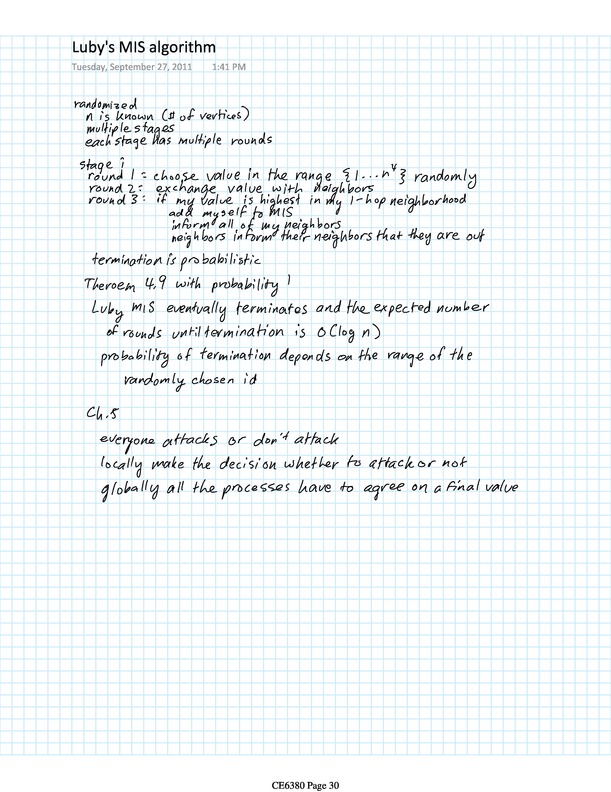 Luby's MIS algorithm
Tuesday, September 27, 2011 1:41 PM
randomized
n is known (# of vertices)
multiple stages
each stage has multiple rounds
stage i
round 1 = choose value in the range {1...n⁴} randomly
round 2: exchange value with neighbors
round 3: if my value is highest in my 1-hop neighborhood
add myself to MIS
inform all of my neighbors
neighbors inform their neighbors that they are out
termination is probabilistic
Theroem 4.9 with probability 1
Luby MIS eventually terminates and the expected number
of rounds until termination is O(log n)
probability of termination depends on the range of the
randomly chosen id
Ch.5
everyone attacks or don't attack
locally make the decision whether to attack or not
globally all the processes have to agree on a final value
CE6380 Page 30